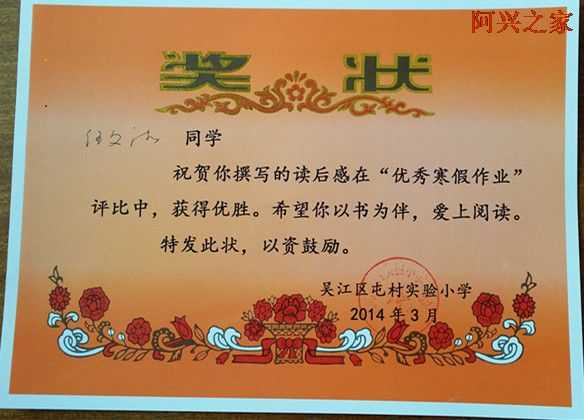 阿兴之家
奖 状
同学
祝贺你撰写的读后感在“优秀寒假作业”
评比中，获得优胜。希望你以书为伴，爱上阅读。
特发此状，以资鼓励。
吴江区屯村实验小学
2014年3月